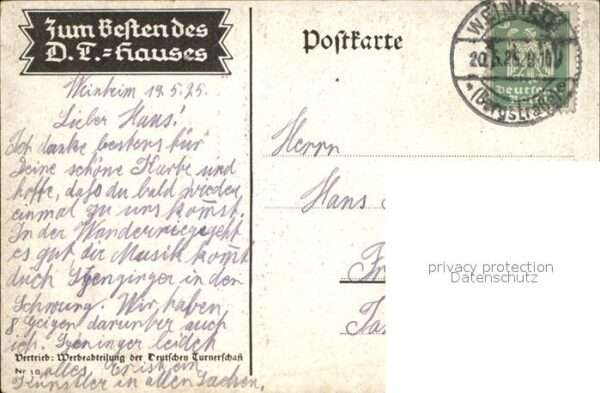 Zum Besten des
D. T.=Hauses
Postkarte
WEINHEIM
20.5.25.
*(Bergstraße)*
Deutsche
Weinheim 19.5.25.
Lieber Hans!
Ich danke bestens für
Deine schöne Karte und
hoffe, daß du bald wieder
einmal zu uns kom̅st.
In der Wanderriege geht
es gut die Musik kom̅t
duch in den
Schwung. Wir haben
8 Geigen darunter auch
ich. leidet
alles. Er ist ein
Künstler in allen Sachen.
Vertrieb: Werbeabteilung der Deutschen Turnerschaft
Nr 10
Herrn
Hans
privacy protection
Datenschutz